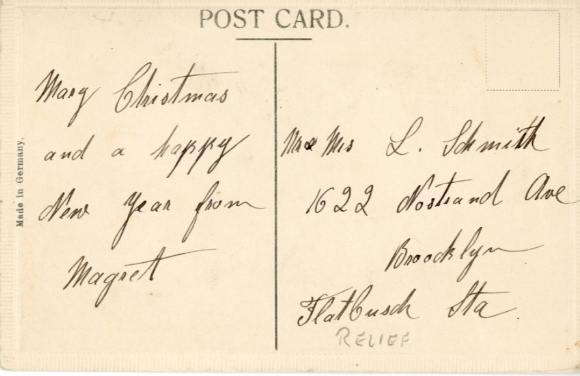 POST CARD.
Made in Germany.
Mary Christmas
and a happy
New Year from
Magret
Mr & Mrs L. Schmith
1622 Nostrand Ave
Broocklyn
Flatbusch Sta.
RELIEF